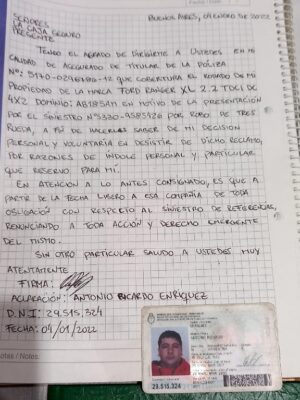 BUENOS AIRES, 04 ENERO DE 2022
SEÑORES
LA CAJA SEGURO
PRESENTE
TENGO EL AGRADO DE DIRIGIRME A USTEDES EN MI
CALIDAD DE ASEGURADO DE TITULAR DE LA POLIZA
Nº: 5170-0296186-12 QUE COBERTURA EL RODADO DE MI
PROPIEDAD DE LA MARCA FORD RANGER XL 2.2 TDCI DE
4X2 DOMINIO: AB185AM EN MOTIVO DE LA PRESENTACIÓN
POR EL SINIESTRO Nº5330-9585426 POR ROBO DE TRES
RUEDA, A FIN DE HACERLES SABER DE MI DECISION
PERSONAL Y VOLUNTARIA EN DESISTIR DE DICHO RECLAMO,
POR RAZONES DE INDOLE PERSONAL Y PARTICULAR
QUE RESERVO PARA MI.
EN ATENCIÓN A LO ANTES CONSIGNADO, ES QUE A
PARTIR DE LA FECHA LIBERO A ESA COMPAÑIA DE TODA
OBLIGACIÓN CON RESPECTO AL SINIESTRO DE REFERENCIAS,
RENUNCIANDO A TODA ACCIÓN Y DERECHO EMERGENTE
DEL MISMO.
SIN OTRO PARTICULAR SALUDO A USTEDES MUY
ATENTATENTE
FIRMA:
ACLARACIÓN: ANTONIO RICARDO ENRIQUEZ
D.N.I: 29.515.324
FECHA: 04/01/2022
ENRIQUEZ
ANTONIO RICARDO
29.515.324
Notes / Notes: